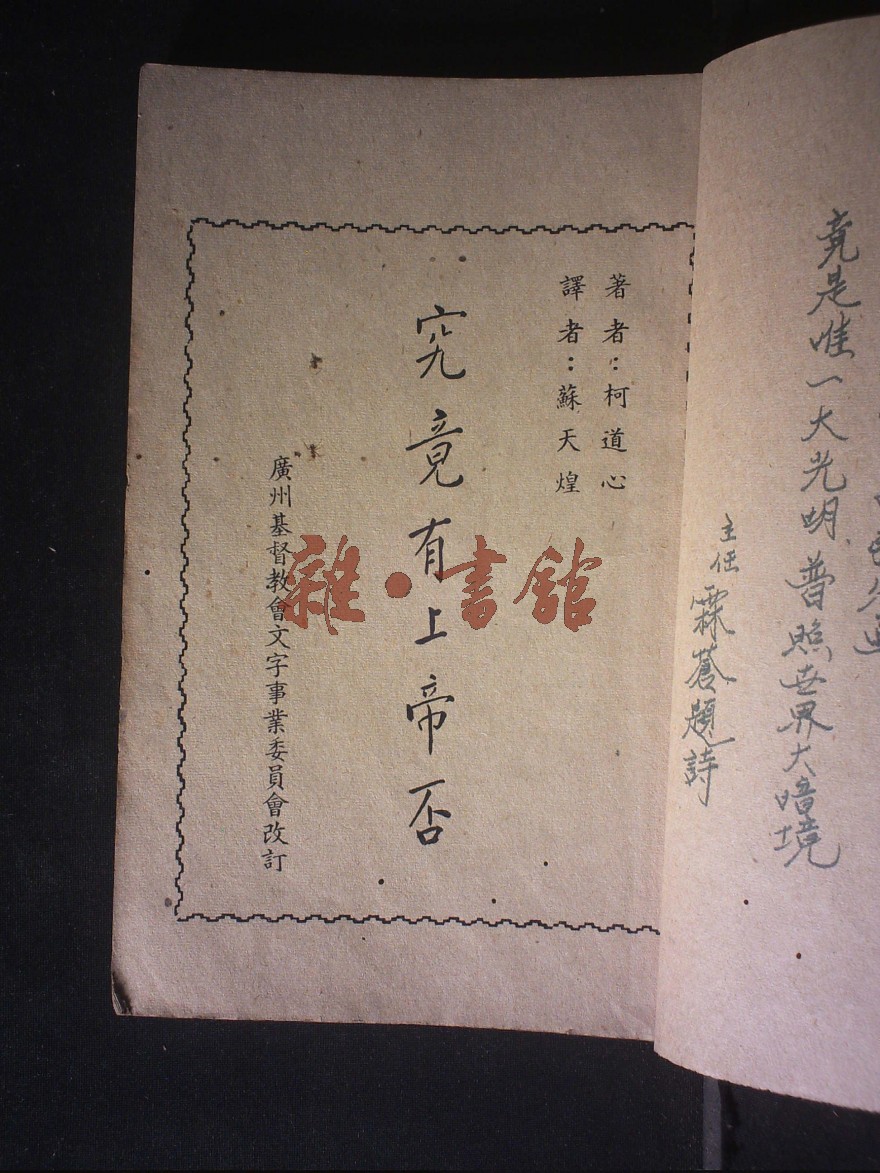 竟是唯一大光明普照世界大暗境
主任 霖蒼題詩
著者：柯道心
譯者：蘇天煌
究竟有上帝否
廣州基督教會文字事業委員會改訂
雜·書館